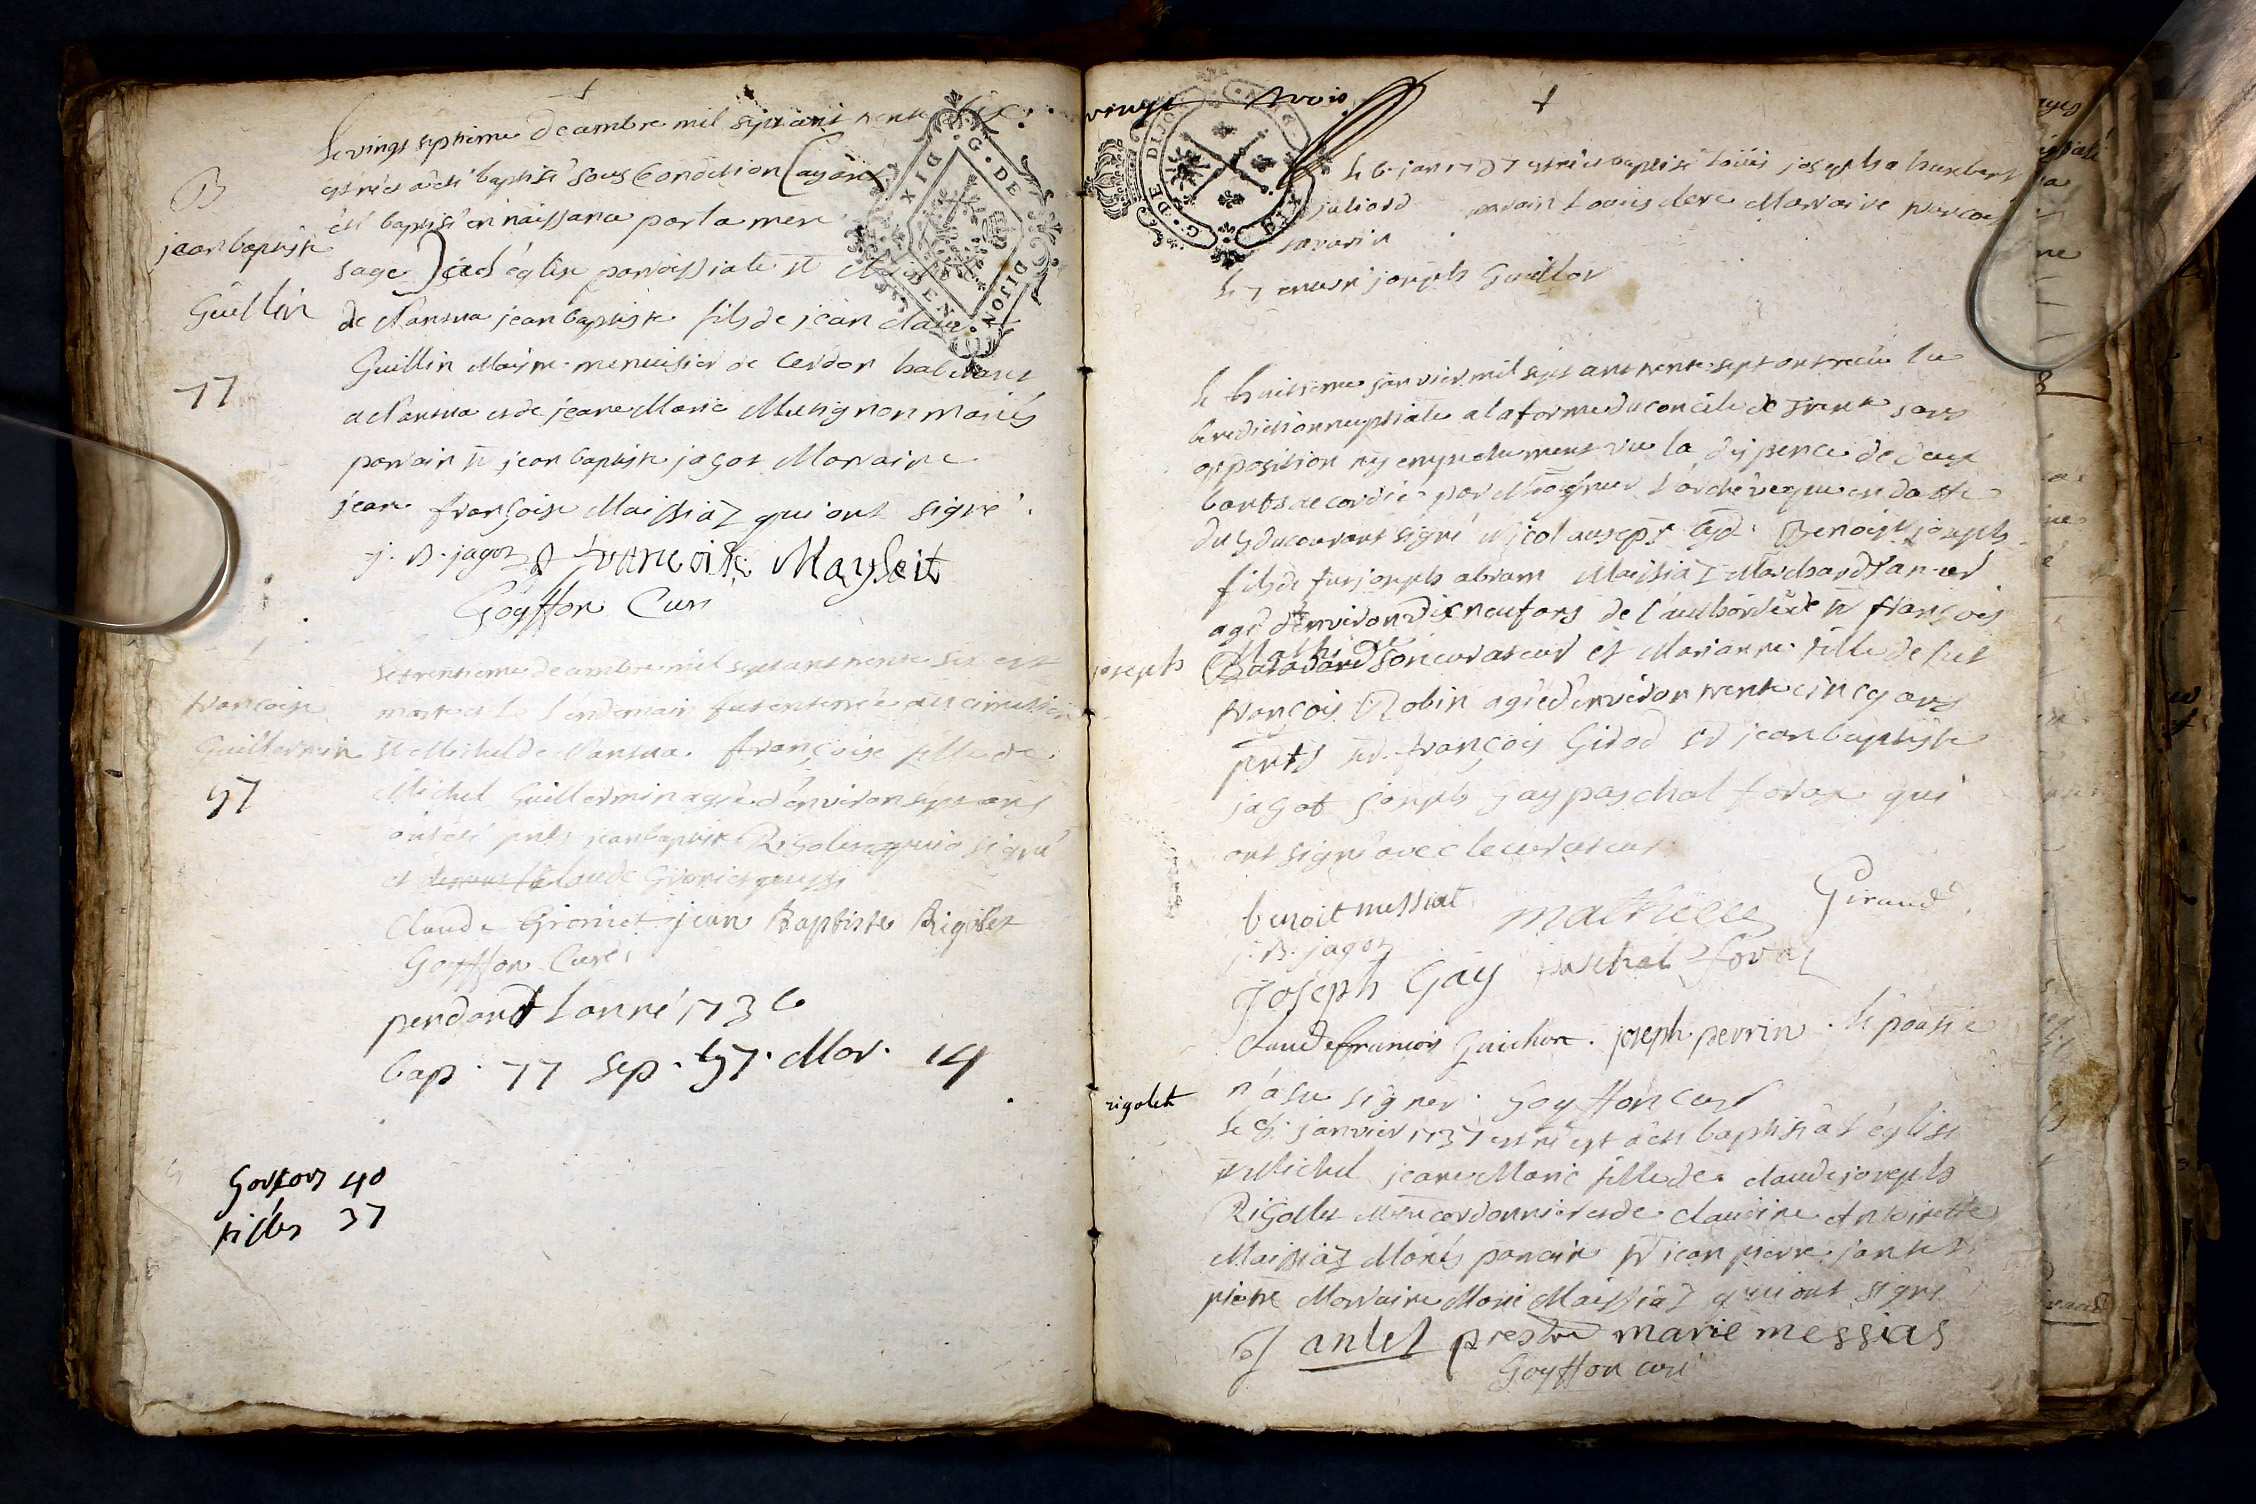 Le vingt septieme decembre mil sept cent trente six
est né et a eté baptisé sous condition (ayant
été baptisé en naissance par la mere
sage) a l'église paroissiale St Michel
de Nantua jean baptiste fils de jean claude
Guillin Maitre menuisier de Cerdon habitant
a Nantua et de jeane Marie Mutignon mariés
parrain sr jean baptiste jagot Marraine
jeane françoise Maissiaz qui ont signé.
j. B. jagot francoise Mayseit
Goyffon Curé
B
jean baptiste
Guillin
77
Le trentieme decembre mil sept cent trente six est
morte et le lendemain fut enterrée au cimetiere
St Michel de Nantua françoise fille de
Michel Guillermin agée d'environ sept ans
ont été pnts jean baptiste Rigolet qui a signé
et Claude Gronict
Claude Gronict jean Baptiste Rigolet
Goyffon Curé
francoise
Guillermin
57
pendant l'anné 1736
bap. 77 sep. 57. Mar. 14
Garsons 40
filles 37
vingt trois
Le 6 jan 1737 est né et baptisé Louis joseph humbert
juliard parrain Louis dere Marraine
savarin
Le 7 enterré joseph Guillot
Le huitieme janvier mil sept cent trente sept ont reçu la
benediction nuptiale a la forme du concile de Trente sans
opposition ny empechement vu la dispence de deux
bants accordée par Monseigneur l'archeveque en datte
du 5 du courant signé Nicolau Benoist joseph
fils de feu joseph abram Maissiaz Marchand Taneur
agé d'environ dix neuf ans de l'authorité de sr françois
Mathi son curateur et Marianne fille de feu
françois Robin agée d'environ trente cinq ans
pnts sr françois Girod sr jean baptiste
jagot joseph Gay paschal forax qui
ont signé avec le curateur
benoit messiat mathieu Giraud
j. B. jagot
Joseph Gay paschal forax
Claude francois Guichon. joseph perrin. l'epousée
n'a su signer. Goyffon Curé
joseph
rigolet
Le 9. janvier 1737 est né et a eté baptisé a l'église
st Michel jeane Marie fille de claude joseph
Rigollet Mtre cordonnier et de claudine Antoinette
Maissiaz Mariés parrain sr jean pierre jantet
pretre Marraine Marie Maissiaz qui ont signé
jantet prestre marie messias
Goyffon curé